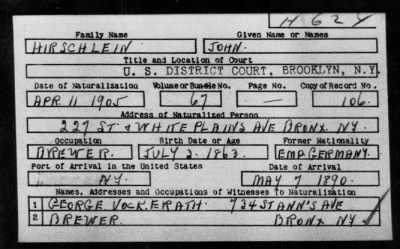 H 624
Family Name Given Name or Names
HIRSCHLEIN JOHN.
Title and Location of Court
U. S. DISTRICT COURT, BROOKLYN, N.Y.
Date of Naturalization Volume or Bundle No. Page No. Copy of Record No.
APR 11 1905 67 — 106.
Address of Naturalized Person
227 ST & WHITE PLAINS AVE BRONX NY.
Occupation Birth Date or Age Former Nationality
BREWER. JULY 2. 1863. EMP. GERMANY.
Port of Arrival in the United States Date of Arrival
NY. MAY 7 1890.
Names, Addresses and Occupations of Witnesses to Naturalization
1 GEORGE VOCKERATH 734 ST ANN'S AVE
2 BREWER. BRONX NY